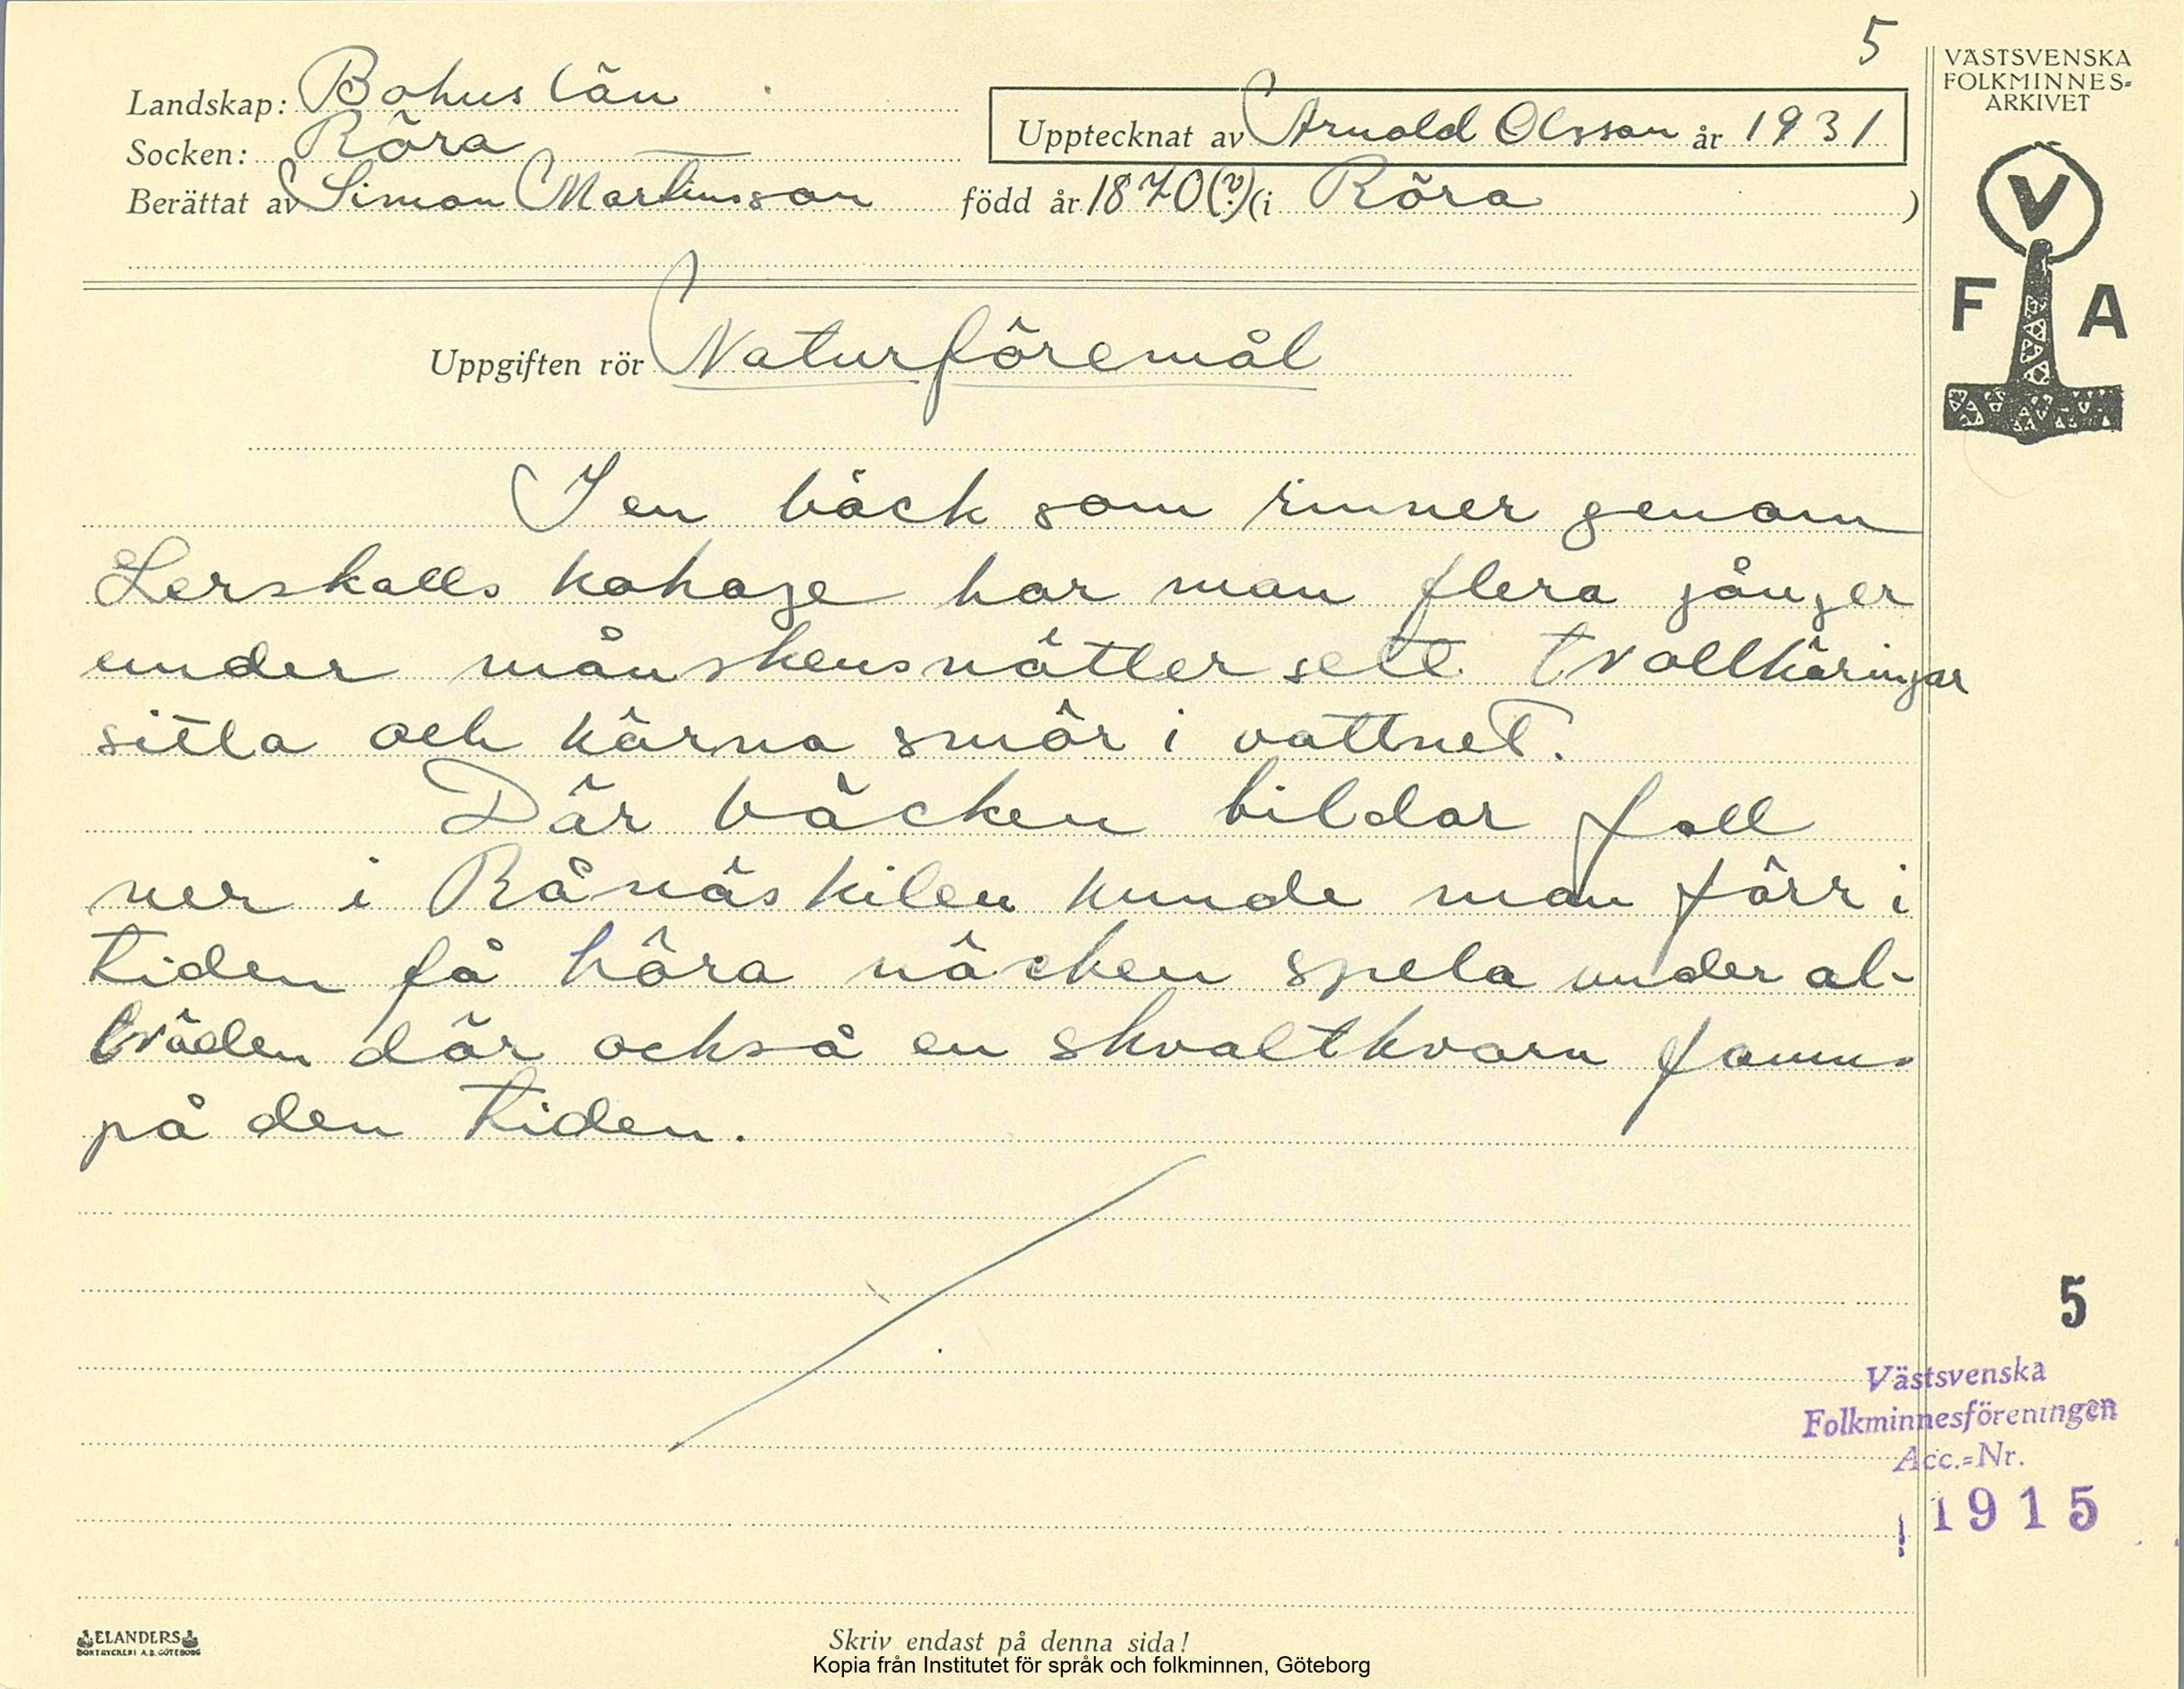 5
VÄSTSVENSKA
FOLKMINNES-
ARKIVET
Landskap: Bohuslän
Socken: Röra
Upptecknat av Arnold Olsson år 1931
Berättat av Simon Martinsson född år 1870(?) (i Röra )
V
F A
Uppgiften rör Naturföremål
I en bäck som rinner genom
Lerskalls kohage har man flera gånger
under månskensnätter sett trollkäringar
sitta och kärna smör i vattnet.
Där bäcken bildar fall
ner i Rånäskilen kunde man förr i
tiden få höra näcken spela under al-
träden där också en skvaltkvarn fanns
på den tiden.
5
Västsvenska
Folkminnesföreningen
Acc.-Nr.
1915
ELANDERS
BOKTRYCKERI A.B. GÖTEBORG
Skriv endast på denna sida!
Kopia från Institutet för språk och folkminnen, Göteborg